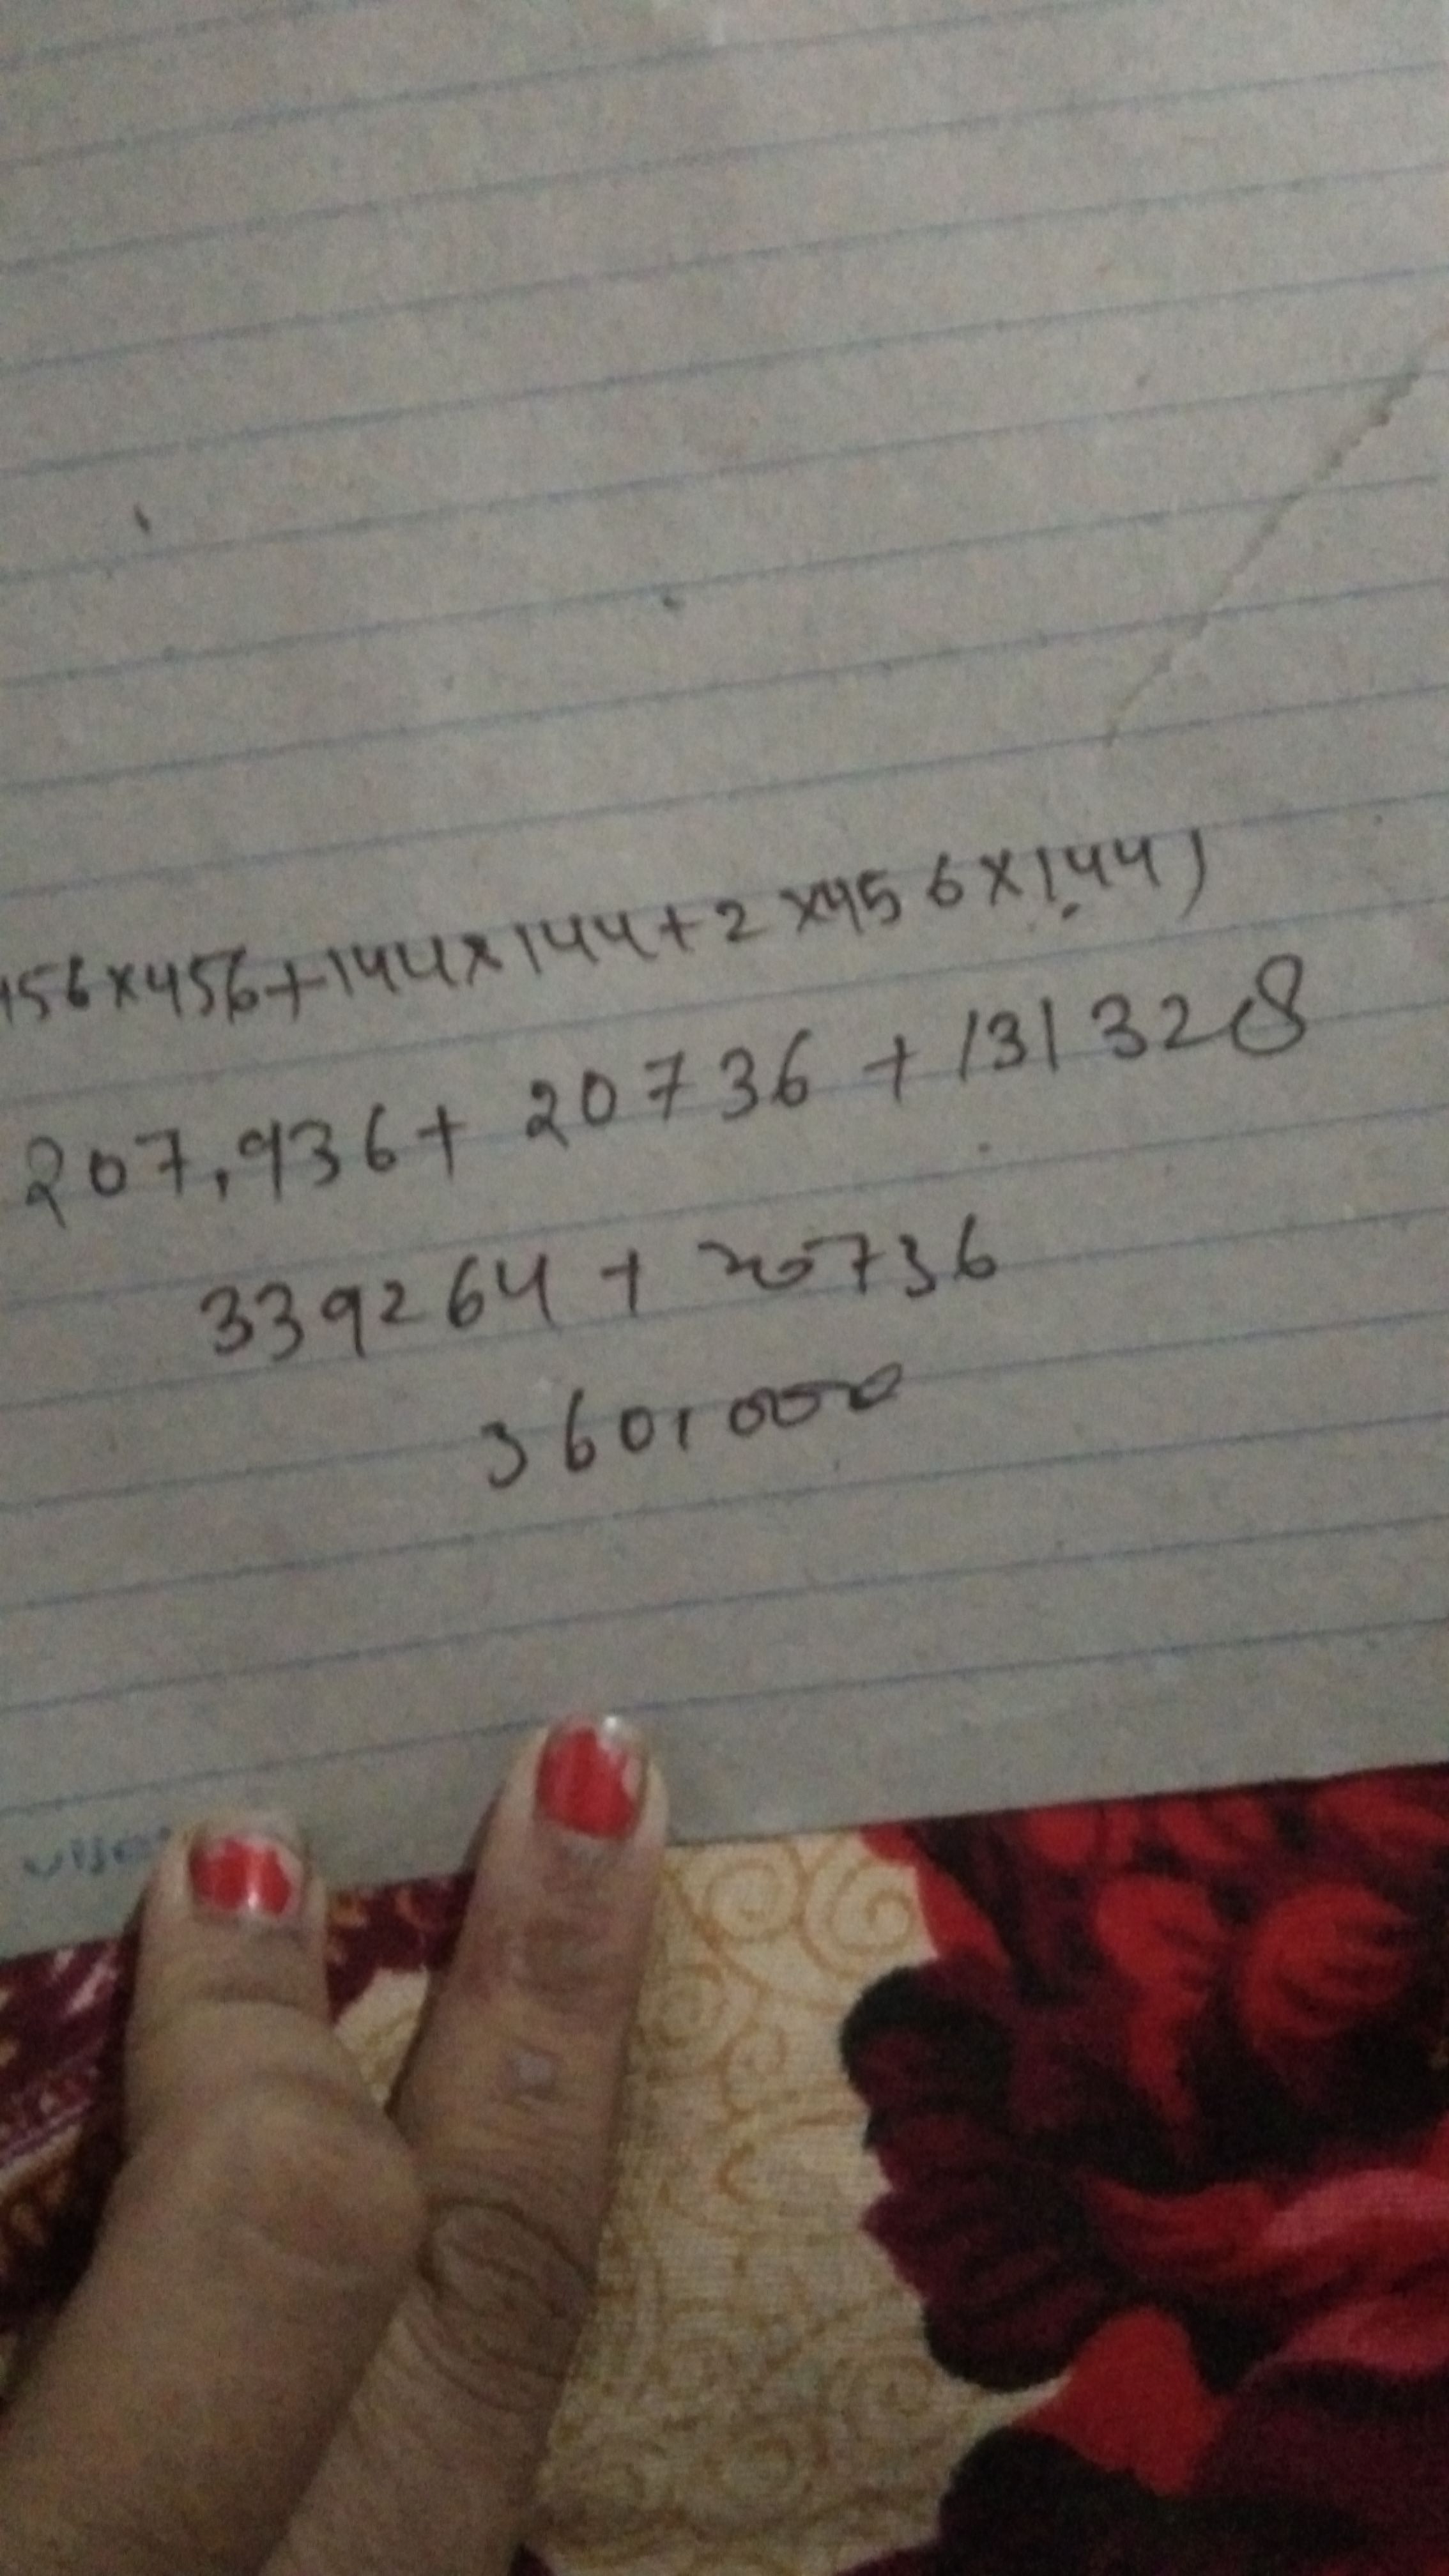 456×456+144×144+2×456×144)
207,936+ 20736 + 131328
339264 + 20736
360,000